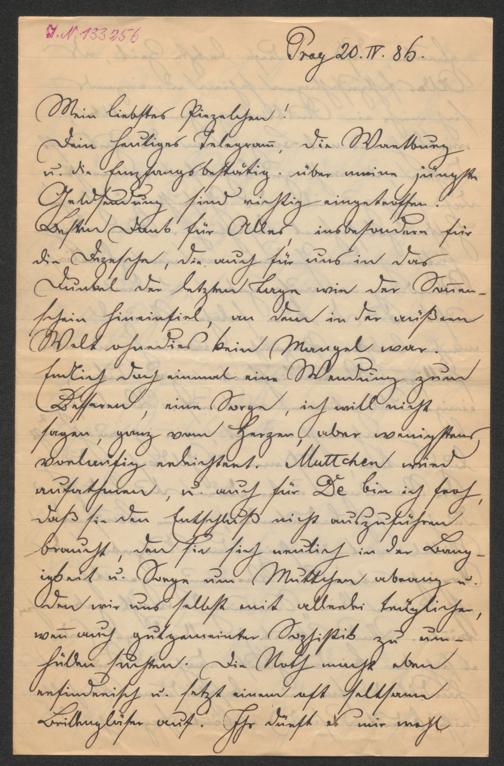 J.N. 133256
Prag 20. IV. 86.
Mein liebstes Piezelchen!
Dein heutiges Telegram̄, die Wartburg
u. die Empfangsbestätig. über meine jüngste
Geldsendung sind richtig eingetroffen.
Besten Dank für Alles, insbesondere für
die Depesche, die auch für uns in das
Dunkel der letzten Tage wie der Son̄en-
schein hineinfiel, an dem in der äußern
Welt ohnedies kein Mangel war.
Endlich doch einmal eine Wendung zum
Besseren, eine Sorge, ich will nicht
sagen, ganz vom Herzen, aber wenigstens
vorläufig erleichtert. Muttchen wird
aufathmen, u. auch für De bin ich froh,
daß sie den Entschluß nicht auszuführen
braucht, den sie sich neulich in der Bang-
igkeit u. Sorge um Muttchen abrang u.
den wir uns selbst mit allerlei trüglicher,
wen̄ auch gutgemeinter Sophistik zu um-
hüllen suchten. Die Noth macht eben
erfinderisch u. setzt einem oft seltsame
Brillengläser auf. Ihr dürft es mir wohl